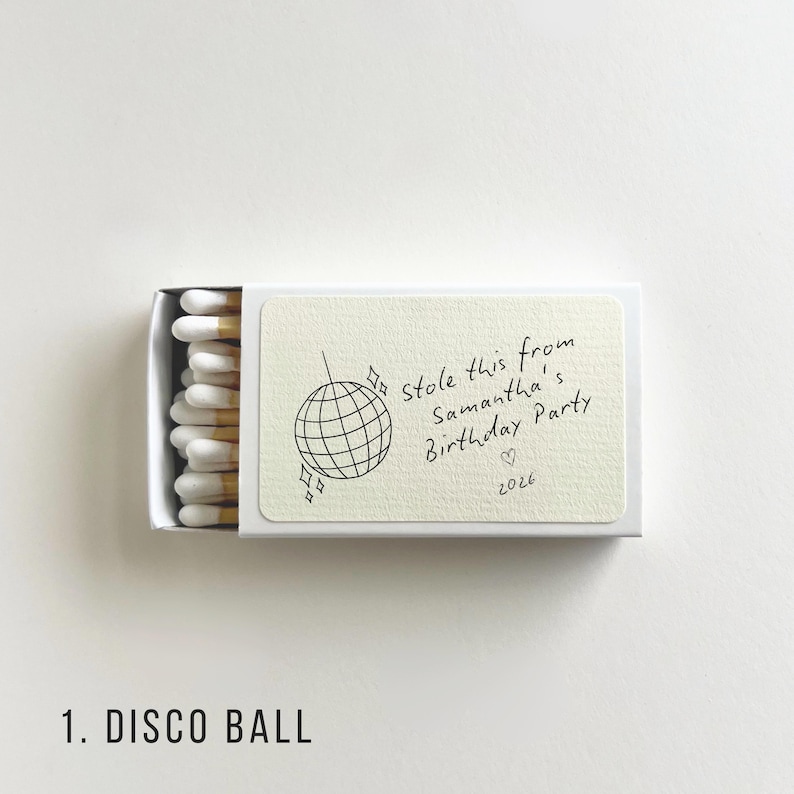 Stole this from
Samantha's
Birthday Party
♡
2026
1. DISCO BALL